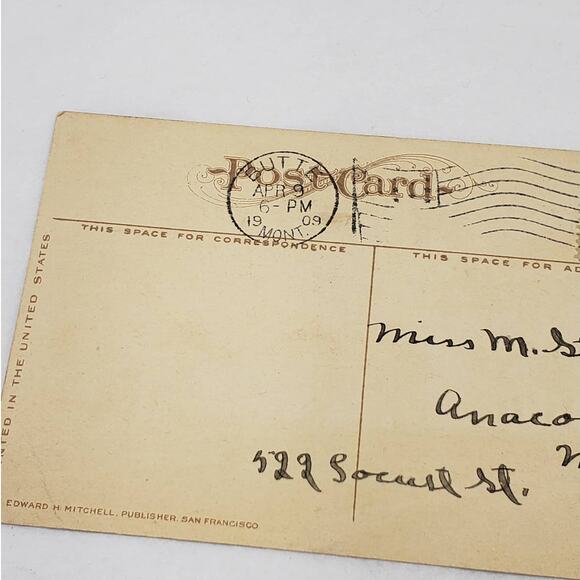 Post Card
BUTTE
APR 9
6-PM
19 09
MONT.
THIS SPACE FOR CORRESPONDENCE
THIS SPACE FOR AD
NTED IN THE UNITED STATES
Miss M. S
Anaco
M
522 Locust St.
EDWARD H. MITCHELL, PUBLISHER, SAN FRANCISCO